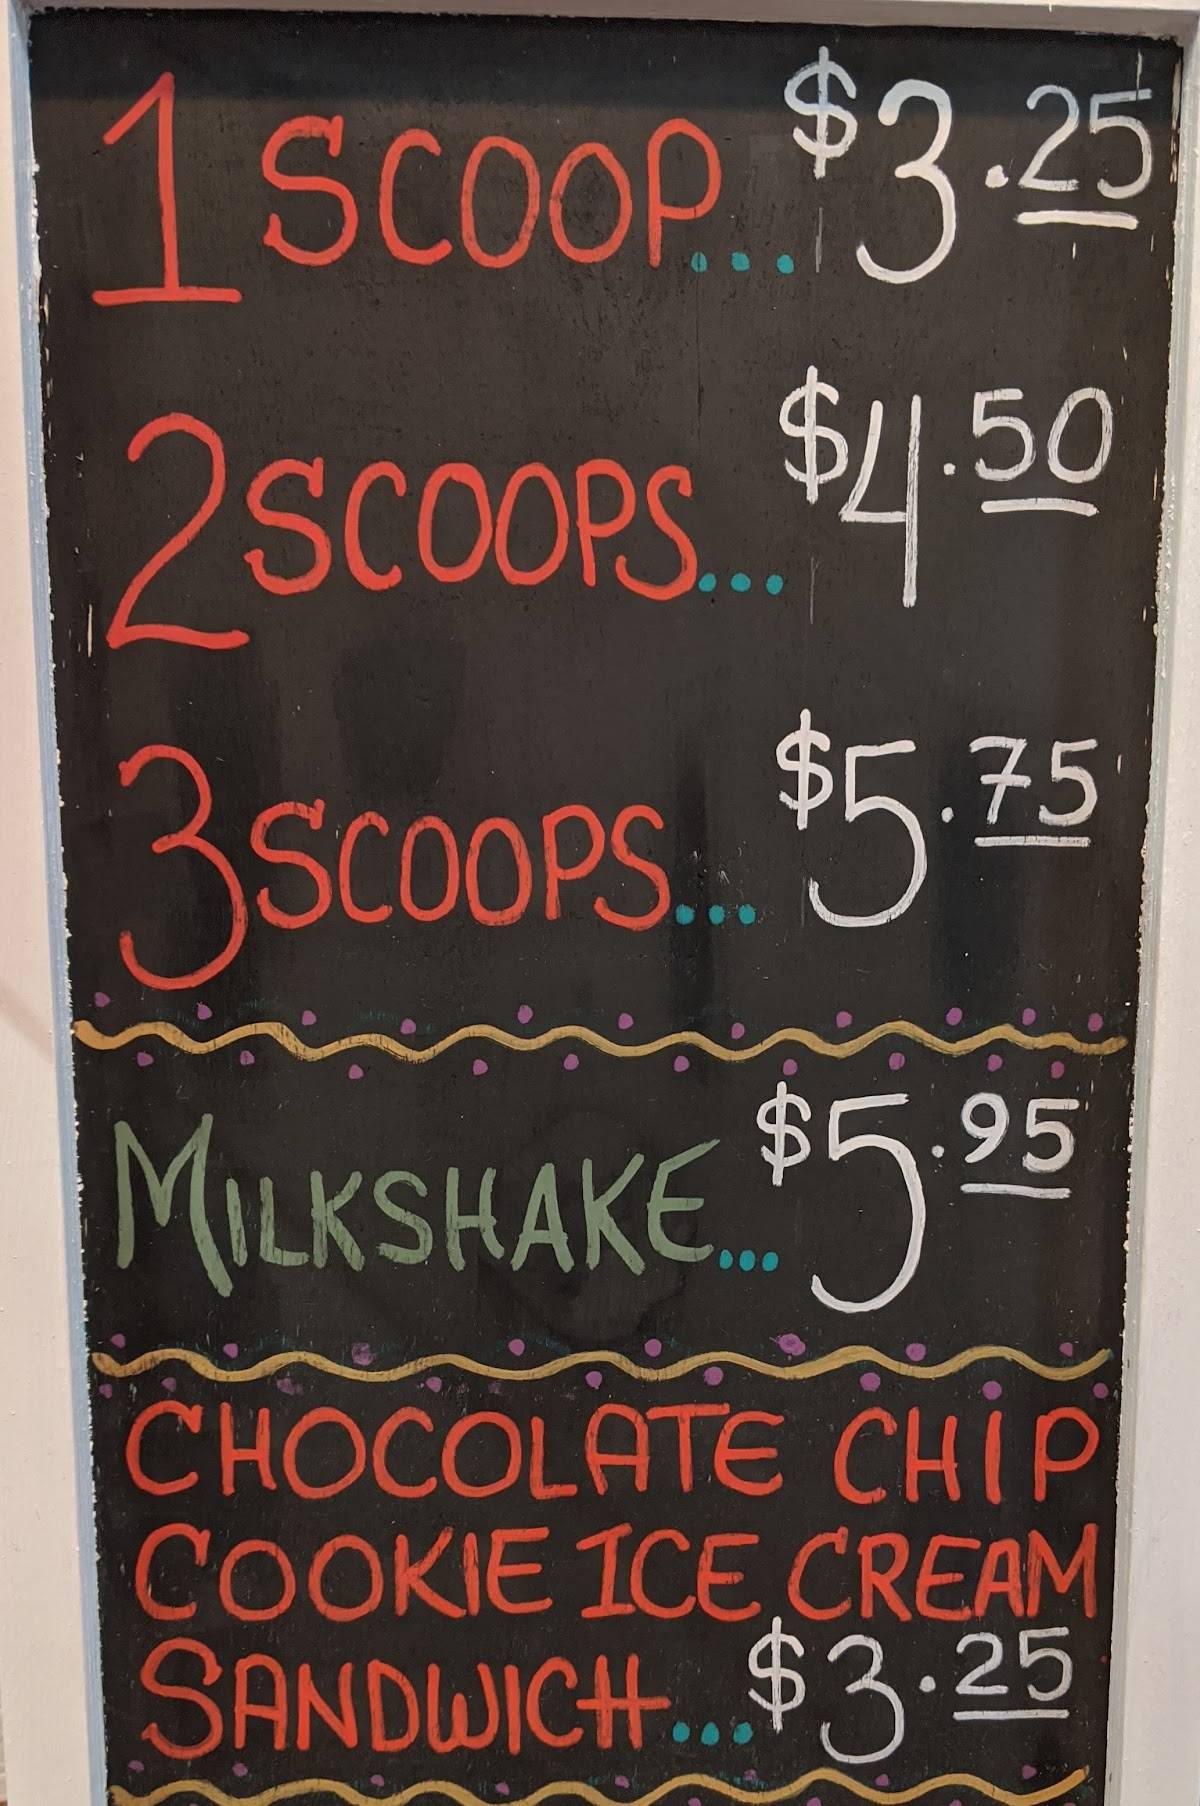 1 SCOOP... $3.25
2 SCOOPS... $4.50
3 SCOOPS... $5.75
MILKSHAKE... $5.95
CHOCOLATE CHIP
COOKIE ICE CREAM
SANDWICH... $3.25